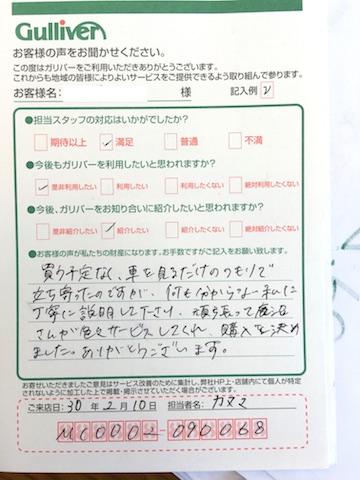 Gulliver
お客様の声をお聞かせください。
この度はガリバーをご利用いただきありがとうございます。
これからも地域の皆様によりよいサービスをご提供できるよう取り組んで参ります。
お客様名: 様 記入例 レ
●担当スタッフの対応はいかがでしたか?
期待以上 満足 普通 不満
●今後もガリバーを利用したいと思われますか?
是非利用したい 利用したい 利用したくない 絶対利用したくない
●今後、ガリバーをお知り合いに紹介したいと思いますか?
是非紹介したい 紹介したい 紹介したくない 絶対紹介したくない
●お客様の声が私たちの財産になります。お手数ですがご記入をお願い致します。
買う予定なく、車を見るだけのつもりで
立ち寄ったのですが、何も分からない私に
丁寧に説明して下さり、頑張って鹿沼
さんが色々サービスしてくれ、購入を決め
ました。ありがとうございます。
お寄せいただきましたご意見はサービス改善のために集計し、弊社HP上・店舗内にて個人が特定
されないように加工した上で掲載・掲示させていただく場合がございます。
ご来店日: 30 年 2 月 10 日 担当者名: カヌマ
MC0002-090068